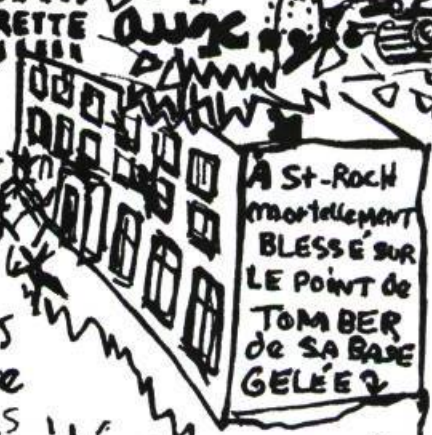 RETTE
aux
À St-ROCH
mortellement
BLESSÉ SUR
LE POINT de
TOMBER
de SA BASE
GELÉE
S
e
S